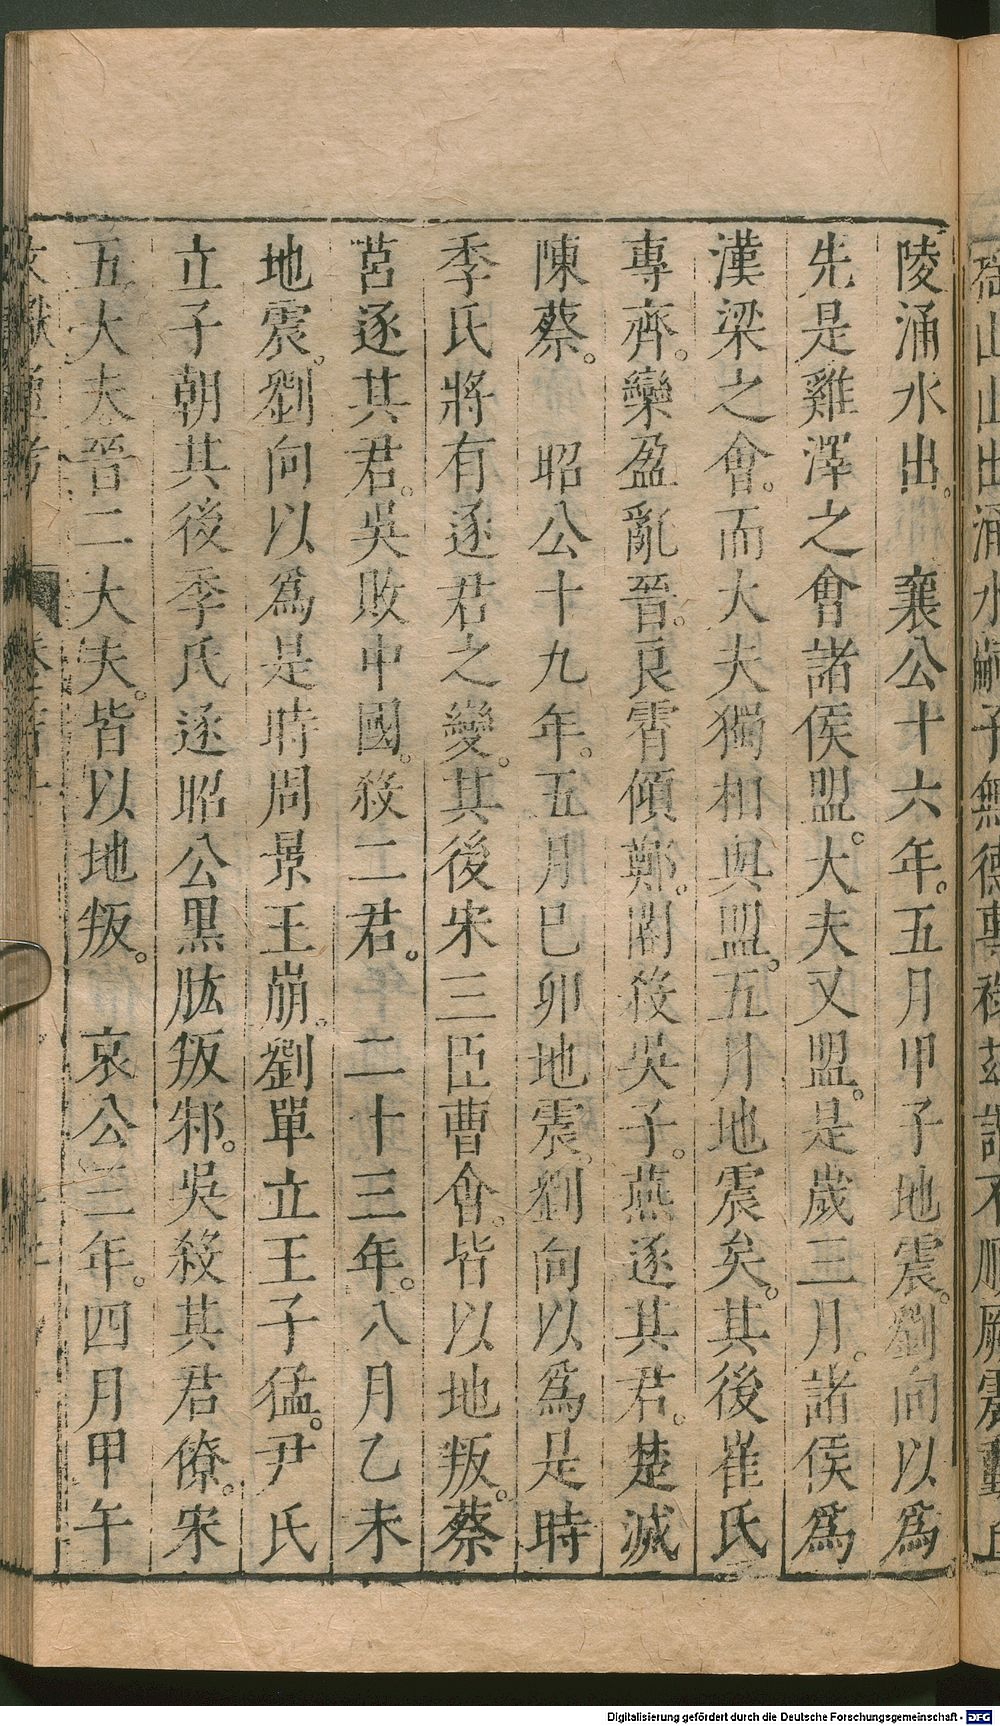 陵涌水出。 襄公十六年。五月甲子地震。劉向以爲
先是雞澤之會諸侯盟。大夫又盟。是歲三月。諸侯爲
漢梁之會。而大夫獨相與盟。五月地震矣。其後崔氏
專齊。欒盈亂晉。良霄傾鄭。閽殺吳子。燕逐其君。楚滅
陳蔡。 昭公十九年。五月巳卯地震。劉向以爲是時
季氏將有逐君之變。其後宋三臣曹會。皆以地叛。蔡
莒逐其君。吳敗中國。殺二君。 二十三年。八月乙未
地震。劉向以爲是時周景王崩。劉單立王子猛。尹氏
立子朝其後季氏逐昭公黑肱叛邾。吳殺其君僚。宋
五大夫晉二大夫。皆以地叛。 哀公三年。四月甲午
Digitalisierung gefördert durch die Deutsche Forschungsgemeinschaft - DFG